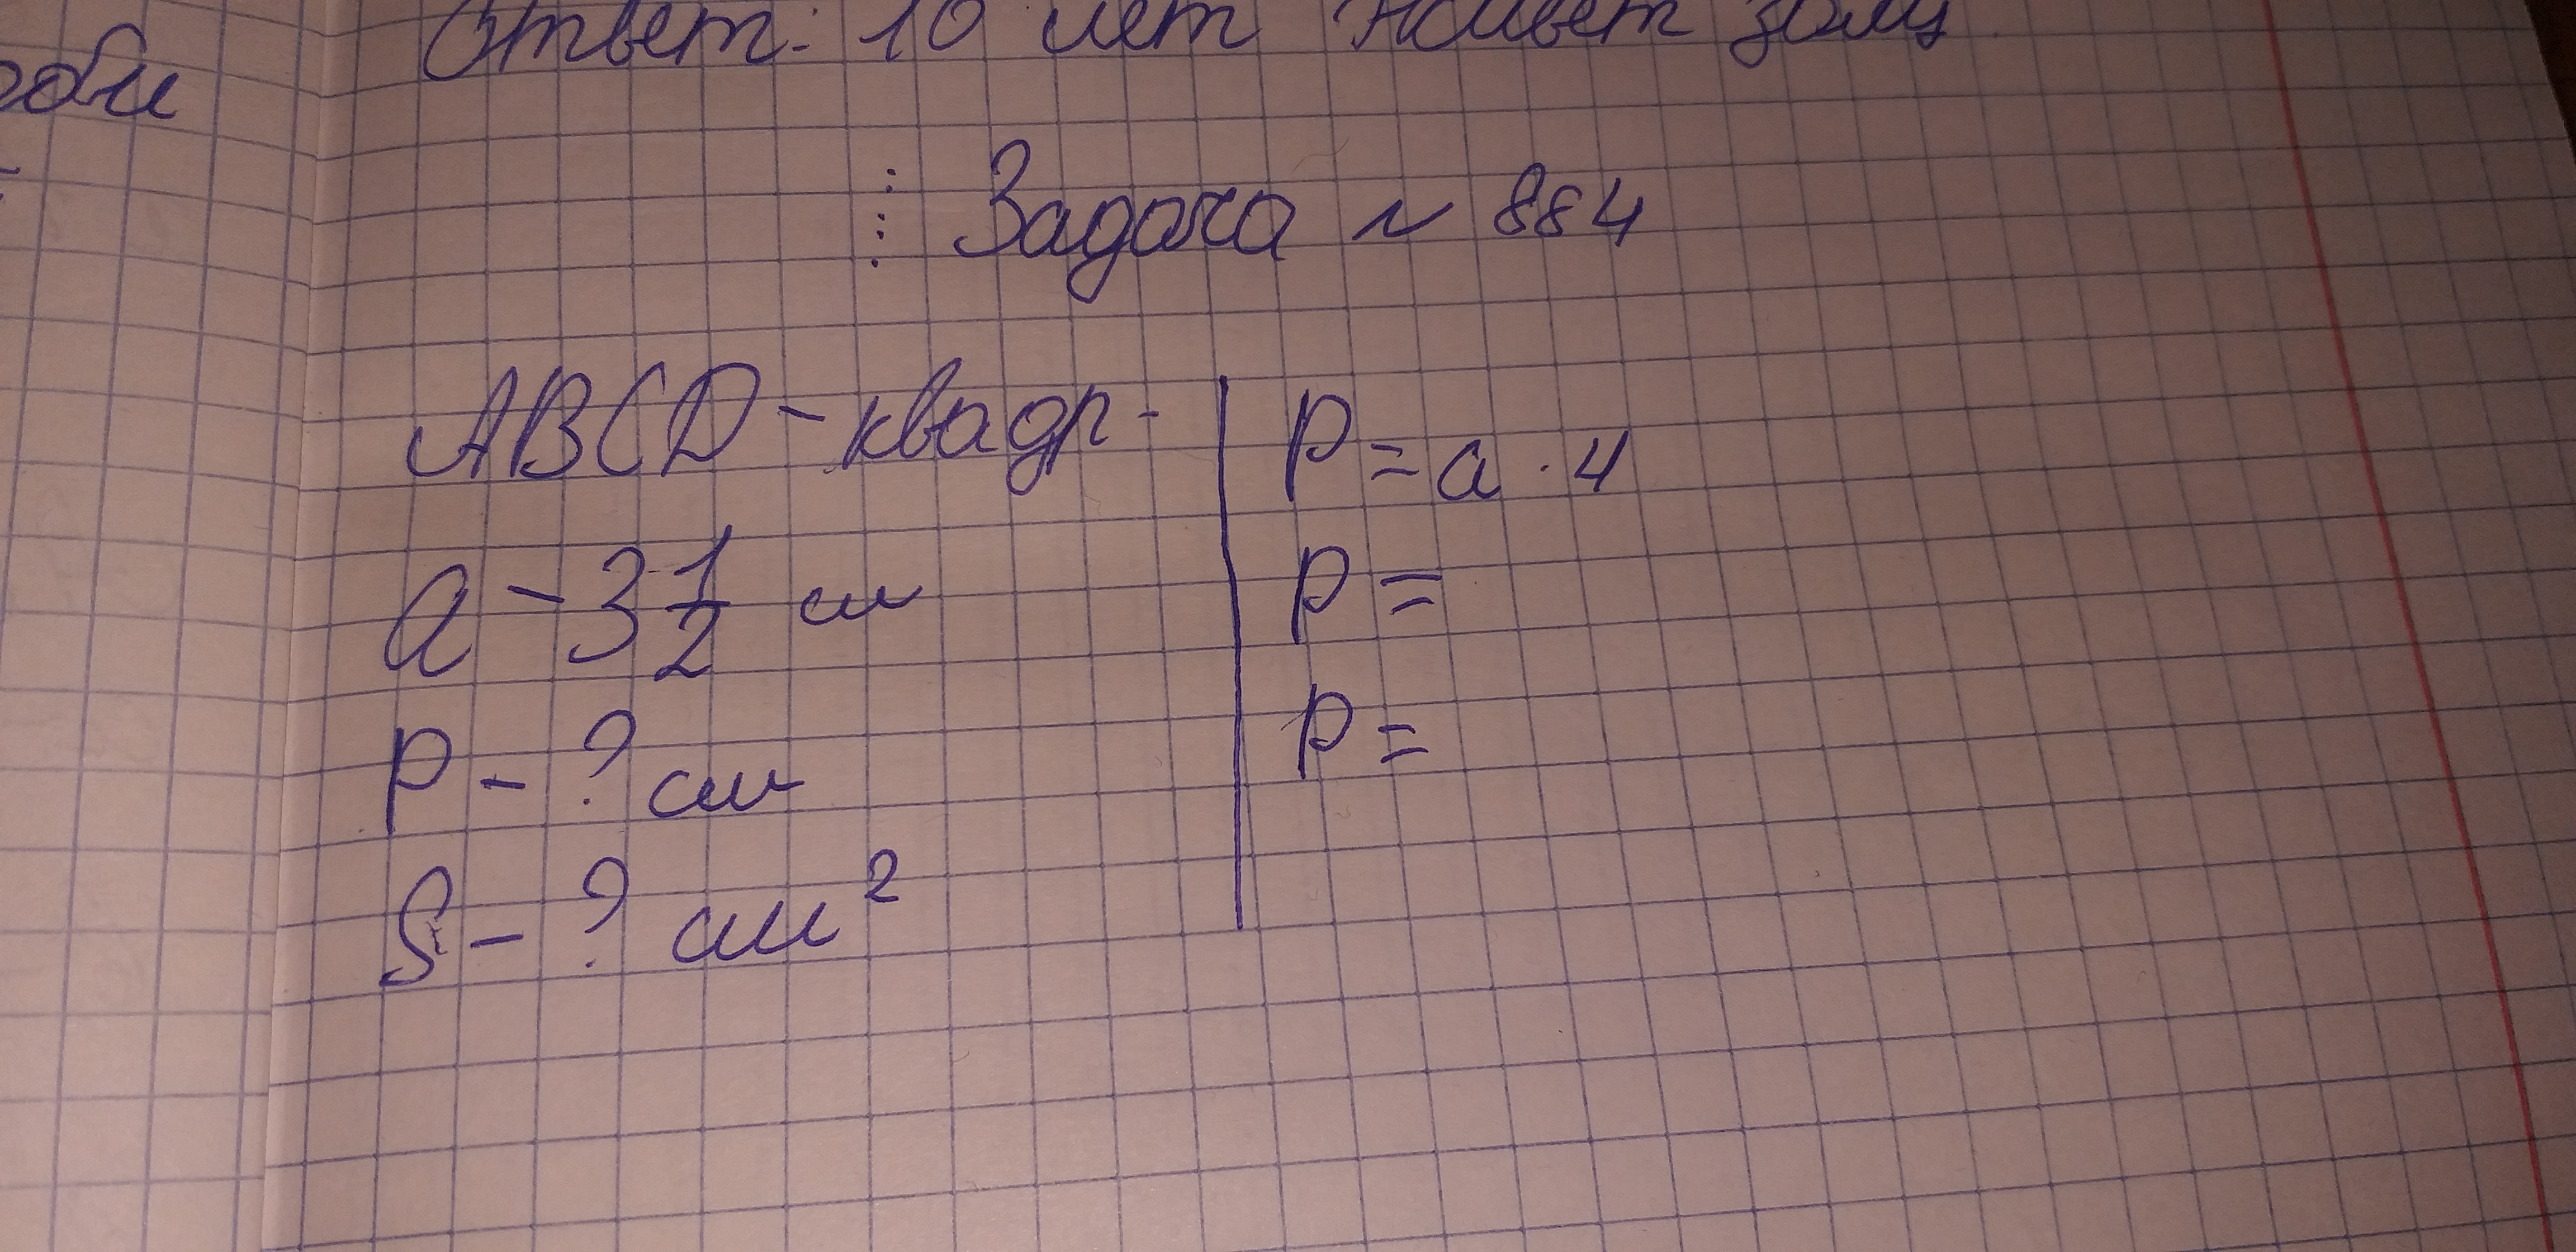 Ответ: 10 лет живёт
Задача № 884
ABCD - квадр -
a - 3 1/2 см
P - ? см
S - ? см²
P = a · 4
P =
P =